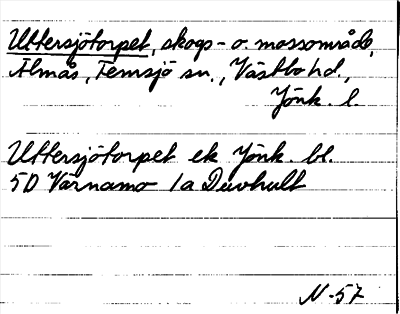 Uttersjötorpet, skogs- o. mossområde,
Älmås, Femsjö sn., Västbo hd.,
Jönk. l.
Uttersjötorpet ek Jönk. bl.
5D Värnamo 1a Duvhult
N-57